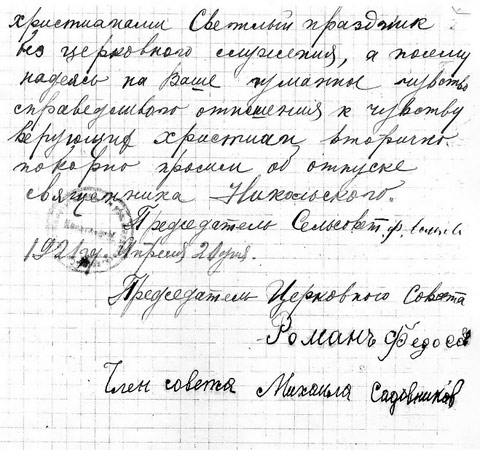 христианами Светлый праздник
без церковного служения, а посему
надеясь на Ваше гуманны чувство
справедливого отношения к чувству
верующих христиан, вторично
покорно просим об отпуске
священника Никольского.
Председатель Сельсовет. Ф.
1921 год Апреля 20 дня.
Председатель Церковного Совета
Романъ Федосов
Член совета Михаила Садовников